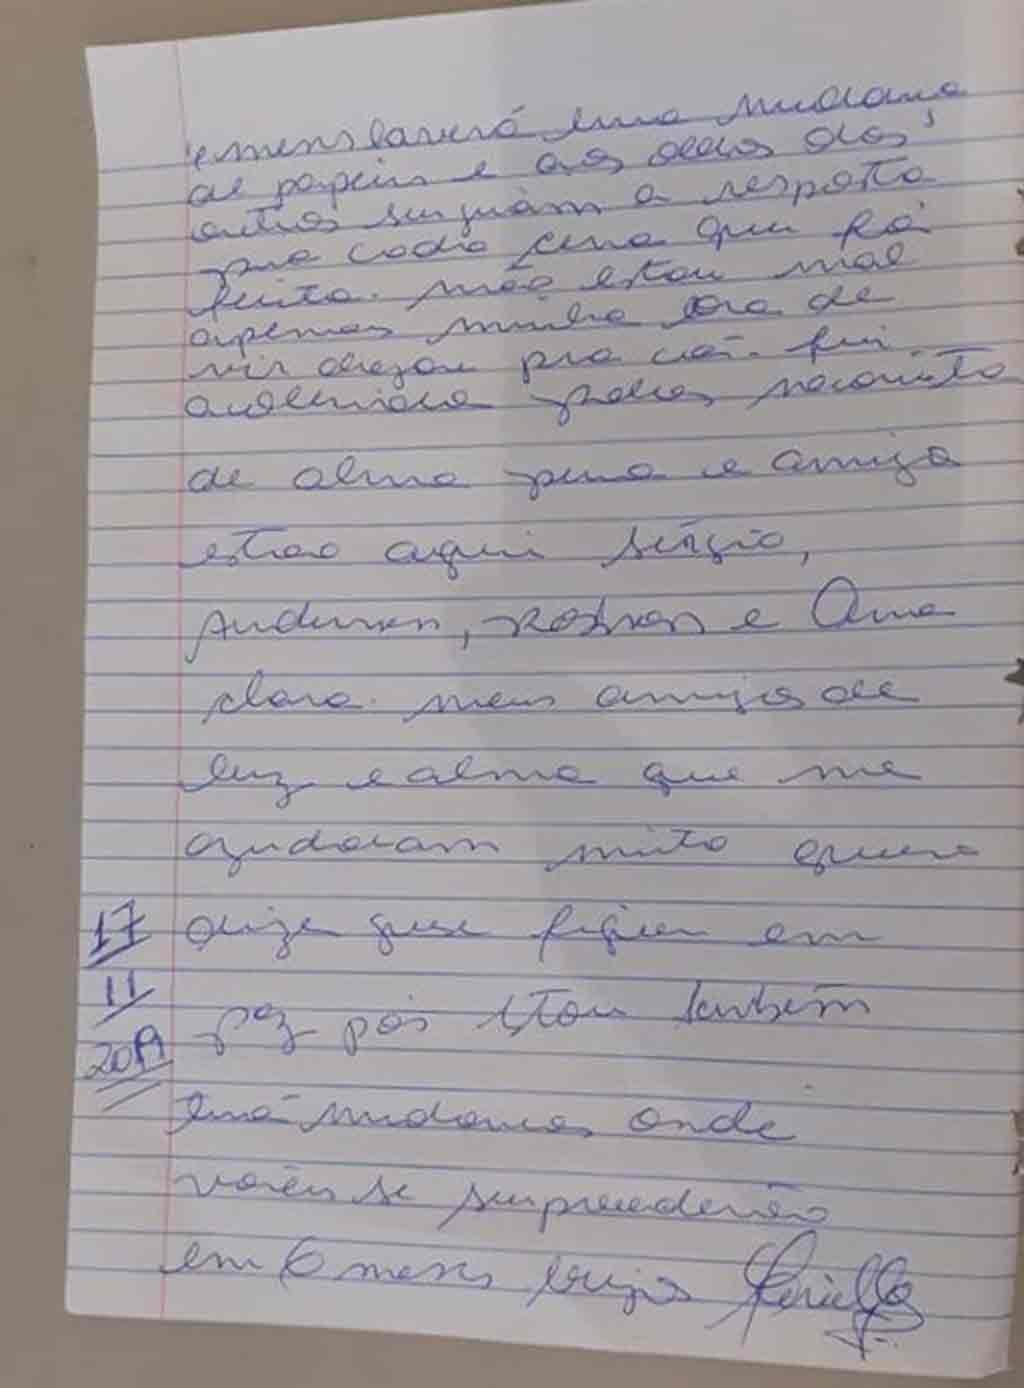 uma mudança
de papeis e aos olhos dos
outros surgiram a resposta
pra cada cena que foi
feita. não estou mal
apenas minha ora de
vir chegou pra cá. fui
de alma pura e amiga
estão aqui sérgio,
Anderson, e Ana
clara. meus amigos de
luz e alma que me
ajudaram muito quero
dizer que fiquem em
17
paz pois estou também
11
2019
mudanças onde
voceis se surpreederão
em 6 meses beijos